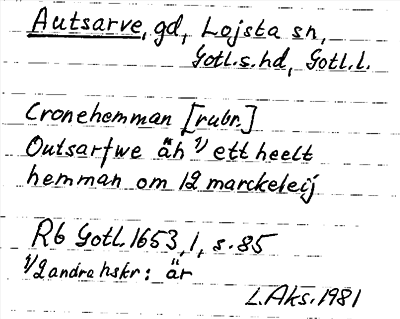 Autsarve, gd, Lojsta sn,
Gotl.s.hd, Gotl.l.
Cronehemman [rubr.]
Outsarfwe äh 1) ett heelt
hemman om 12 marckeleij
Rb Gotl. 1653, 1, s. 85
1) 2 andra hskr: är
L.Aks. 1981